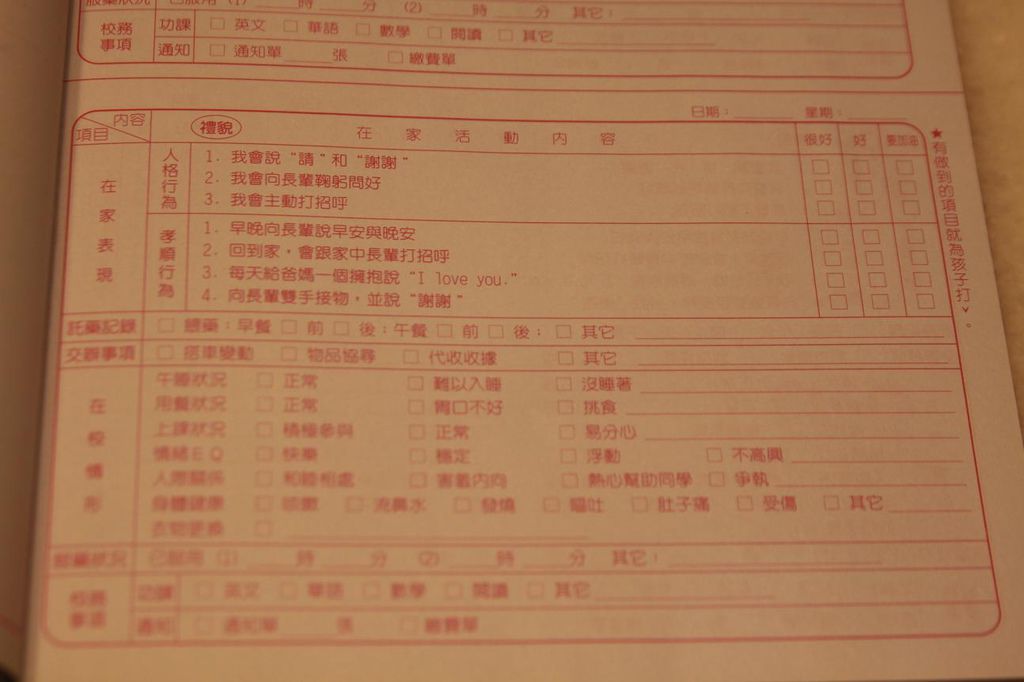 服藥狀況 已服用 (1) 時 分 (2) 時 分 其它：
校務事項 功課 □ 英文 □ 華語 □ 數學 □ 閱讀 □ 其它
通知 □ 通知單 張 □ 繳費單
日期： 星期：
內容 項目 禮貌 在家活動內容 很好 好 要加油
在家表現
人格行為
1. 我會說“請”和“謝謝”
2. 我會向長輩鞠躬問好
3. 我會主動打招呼
孝順行為
1. 早晚向長輩說早安與晚安
2. 回到家，會跟家中長輩打招呼
3. 每天給爸媽一個擁抱說“I love you.”
4. 向長輩雙手接物，並說“謝謝”
★有做到的項目就為孩子打ˇ。
託藥記錄 □ 聽藥：早餐 □ 前 □ 後；午餐 □ 前 □ 後； □ 其它
交辦事項 □ 搭車變動 □ 物品協尋 □ 代收收據 □ 其它
在校情形
午睡狀況 □ 正常 □ 難以入睡 □ 沒睡著
用餐狀況 □ 正常 □ 胃口不好 □ 挑食
上課狀況 □ 積極參與 □ 正常 □ 易分心
情緒EQ □ 快樂 □ 穩定 □ 浮動 □ 不高興
人際關係 □ 和睦相處 □ 害羞內向 □ 熱心幫助同學 □ 爭執
身體健康 □ 咳嗽 □ 流鼻水 □ 發燒 □ 嘔吐 □ 肚子痛 □ 受傷 □ 其它
衣物更換 □
服藥狀況 已服用 (1) 時 分 (2) 時 分 其它：
校務事項 功課 □ 英文 □ 華語 □ 數學 □ 閱讀 □ 其它
通知 □ 通知單 張 □ 繳費單